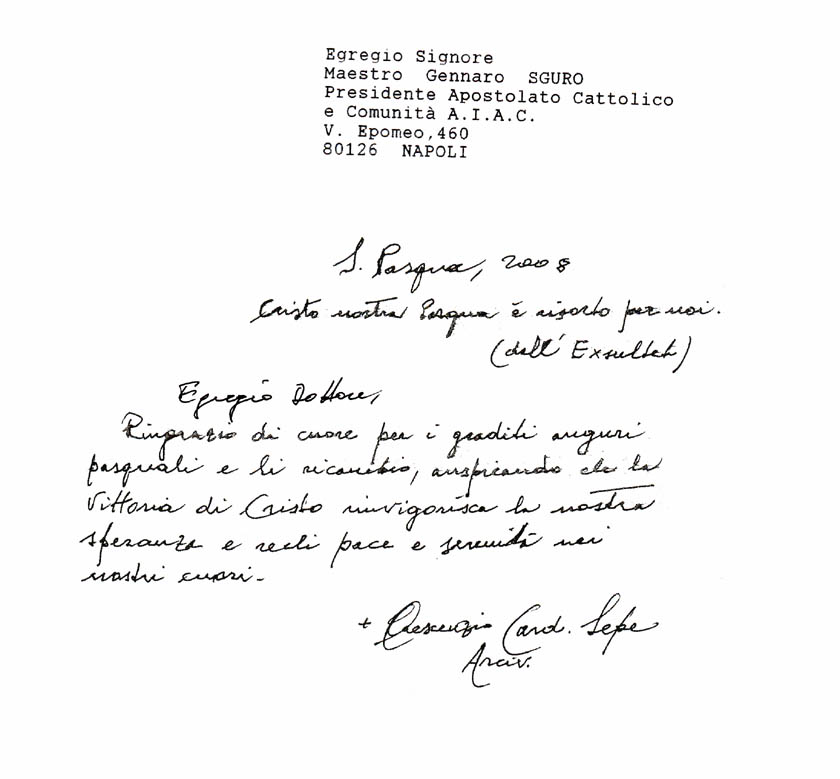 Egregio Signore
Maestro Gennaro SGURO
Presidente Apostolato Cattolico
e Comunità A.I.A.C.
V. Epomeo,460
80126 NAPOLI
S. Pasqua, 2008
Cristo nostra Pasqua è risorto per noi.
(dall' Exsultet)
Egregio Dottore,
Ringrazio di cuore per i graditi auguri
pasquali e li ricambio, auspicando che la
Vittoria di Cristo rinvigorisca la nostra
speranza e rechi pace e serenità nei
nostri cuori.
+ Crescenzio Card. Sepe
Arciv.